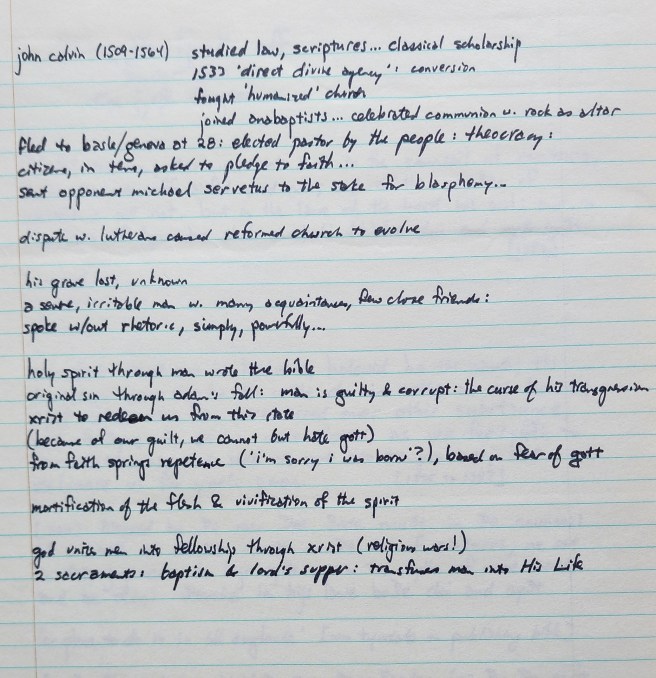 john calvin (1509-1564) studied law, scriptures... classical scholarship
1533 'direct divine agency': conversion
fought 'humanized' church
joined anabaptists... celebrated communion w. rock as altar
fled to basle/geneva at 28: elected pastor by the people: theocracy:
citizens, in turn, asked to pledge to faith...
sent opponent michael servetus to the stake for blasphemy...
dispute w. lutherans caused reformed church to evolve
his grave lost, unknown
a severe, irritable man w. many acquaintances, few close friends:
spoke w/out rhetoric, simply, powerfully...
holy spirit through man wrote the bible
original sin through adam's fall: man is guilty & corrupt: the curse of his transgression
xrist to redeem us from this state
(because of our guilt, we cannot but hate gott)
from faith springs repetence ('i'm sorry i was born'?), based on fear of gott
mortification of the flesh & vivification of the spirit
god unites men into fellowship through xrist (religious wars!)
2 sacraments: baptism & lord's supper: transfuses man into His Life